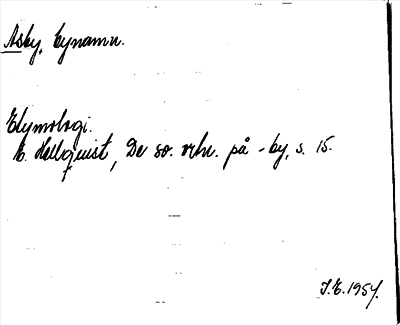 Asby, bynamn.
Etymologi.
E. Hellquist, De sv. ortn. på -by, s. 15.
J.E. 1954.